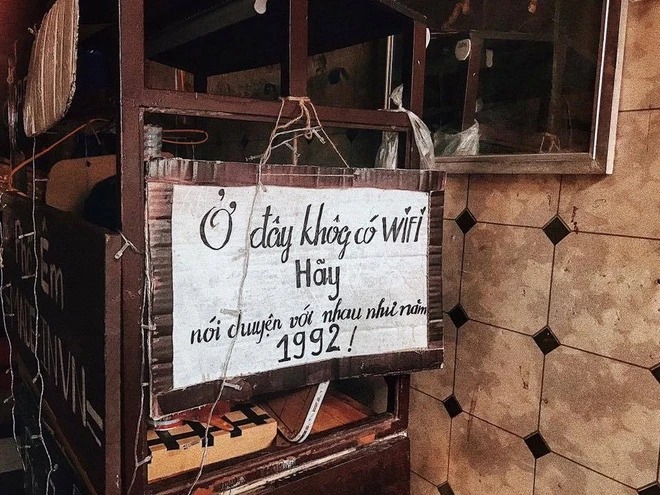 Ở đây khôg có WiFi
Hãy
nói chuyện với nhau như năm
1992!